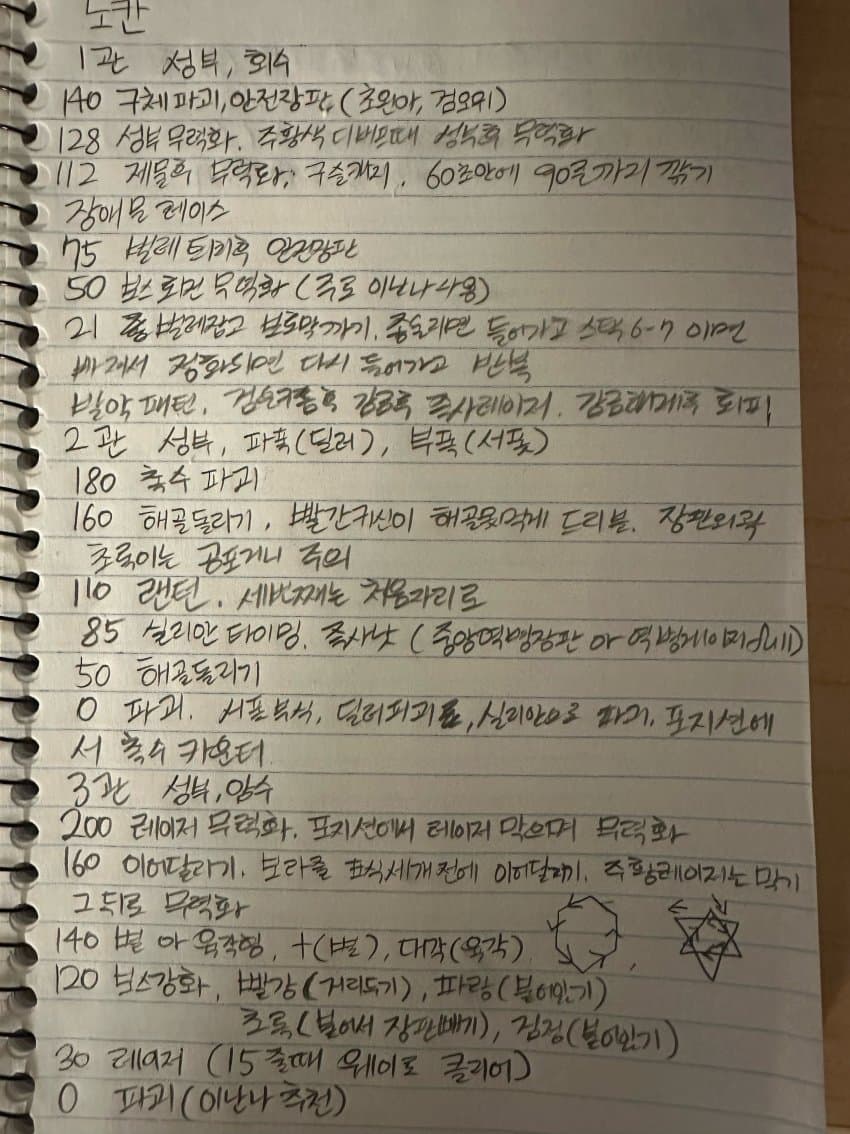 노칸
1관 성부, 회수
140 구체파괴, 안전장판 (초원아, 검모위)
128 성부무력화. 주황색 디버프때 성부후 무력화
112 제물후 무력화, 구슬깨지. 60초안에 90줄까지 깎기
장애물 레이스
75 벌레 퇴치후 안전장판
50 보스 무력화 (주로 이난나 사용)
21 벌레잡고 보호막까기. 들어가고 스택 6-7 이면
빠져서 정화되면 다시 들어가고 반복
발악 패턴. 즉사레이저. 회피
2관 성부, 파폭(딜러), 부폭(서폿)
180 촉수 파괴
160 해골돌리기, 빨간귀신이 해골못먹게 드리블. 장판외곽
초록이는 공포거니 주의
110 랜턴. 세번째는 처음자리로
85 실리안 타이밍. 즉사낫 (중앙역병장판 or 역병게이지)
50 해골돌리기
0 파괴. 서포부식, 딜러파괴, 실리안으로 파괴. 포지션에
서 촉수 카운터
3관 성부, 암수
200 레이저 무력화. 포지션에서 레이저 막으며 무력화
160 이어달리기. 보라돌 표식세개전에 이어달리기. 주황레이저는 막기
그뒤로 무력화
140 별 or 육각형, +(별), 대각(육각)
120 보스강화, 빨강(거리두기), 파랑(붙어있기)
초록(붙어서 장판빼기), 검정(붙어있기)
30 레이저 (15줄때 웨이로 클리어)
0 파괴(이난나 추천)